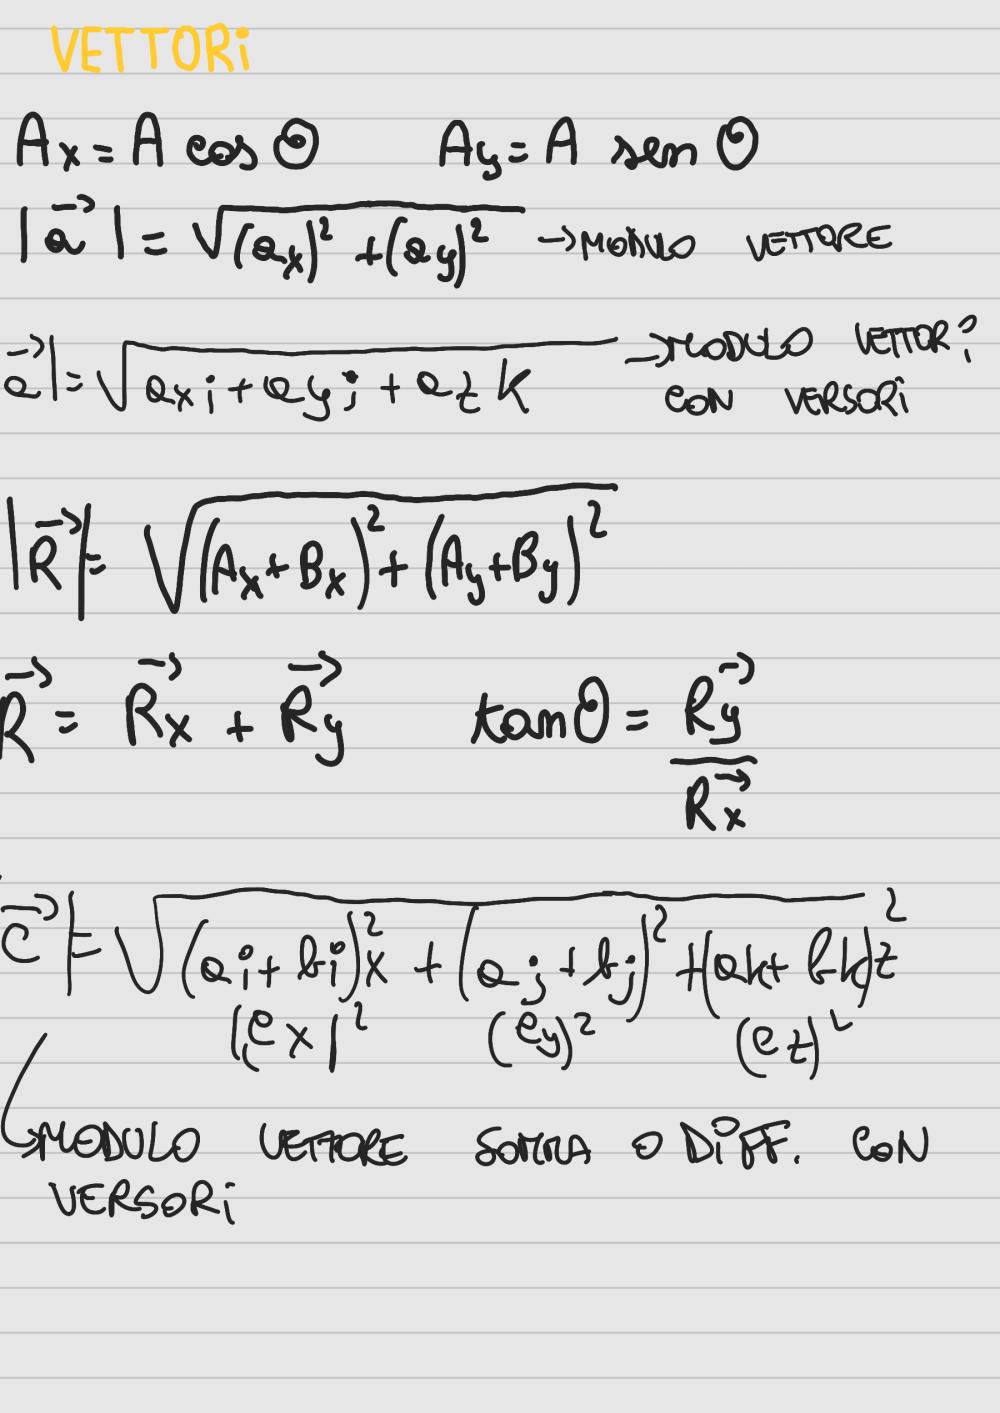 VETTORI
Ax = A cos Θ Ay = A sen Θ
|a⃗| = √(ax)² + (ay)² → MODULO VETTORE
a⃗| = √axi + ayj + azk → MODULO VETTORI
CON VERSORI
|R⃗| = √(Ax+Bx)² + (Ay+By)²
R⃗ = R⃗x + R⃗y tanθ = R⃗y / R⃗x
c⃗| = √(ai + bi)²x + (aj + bj)² + (ak + bk)z²
(cx)² (cy)² (cz)²
→ MODULO VETTORE SOMMA O DIFF. CON
VERSORI